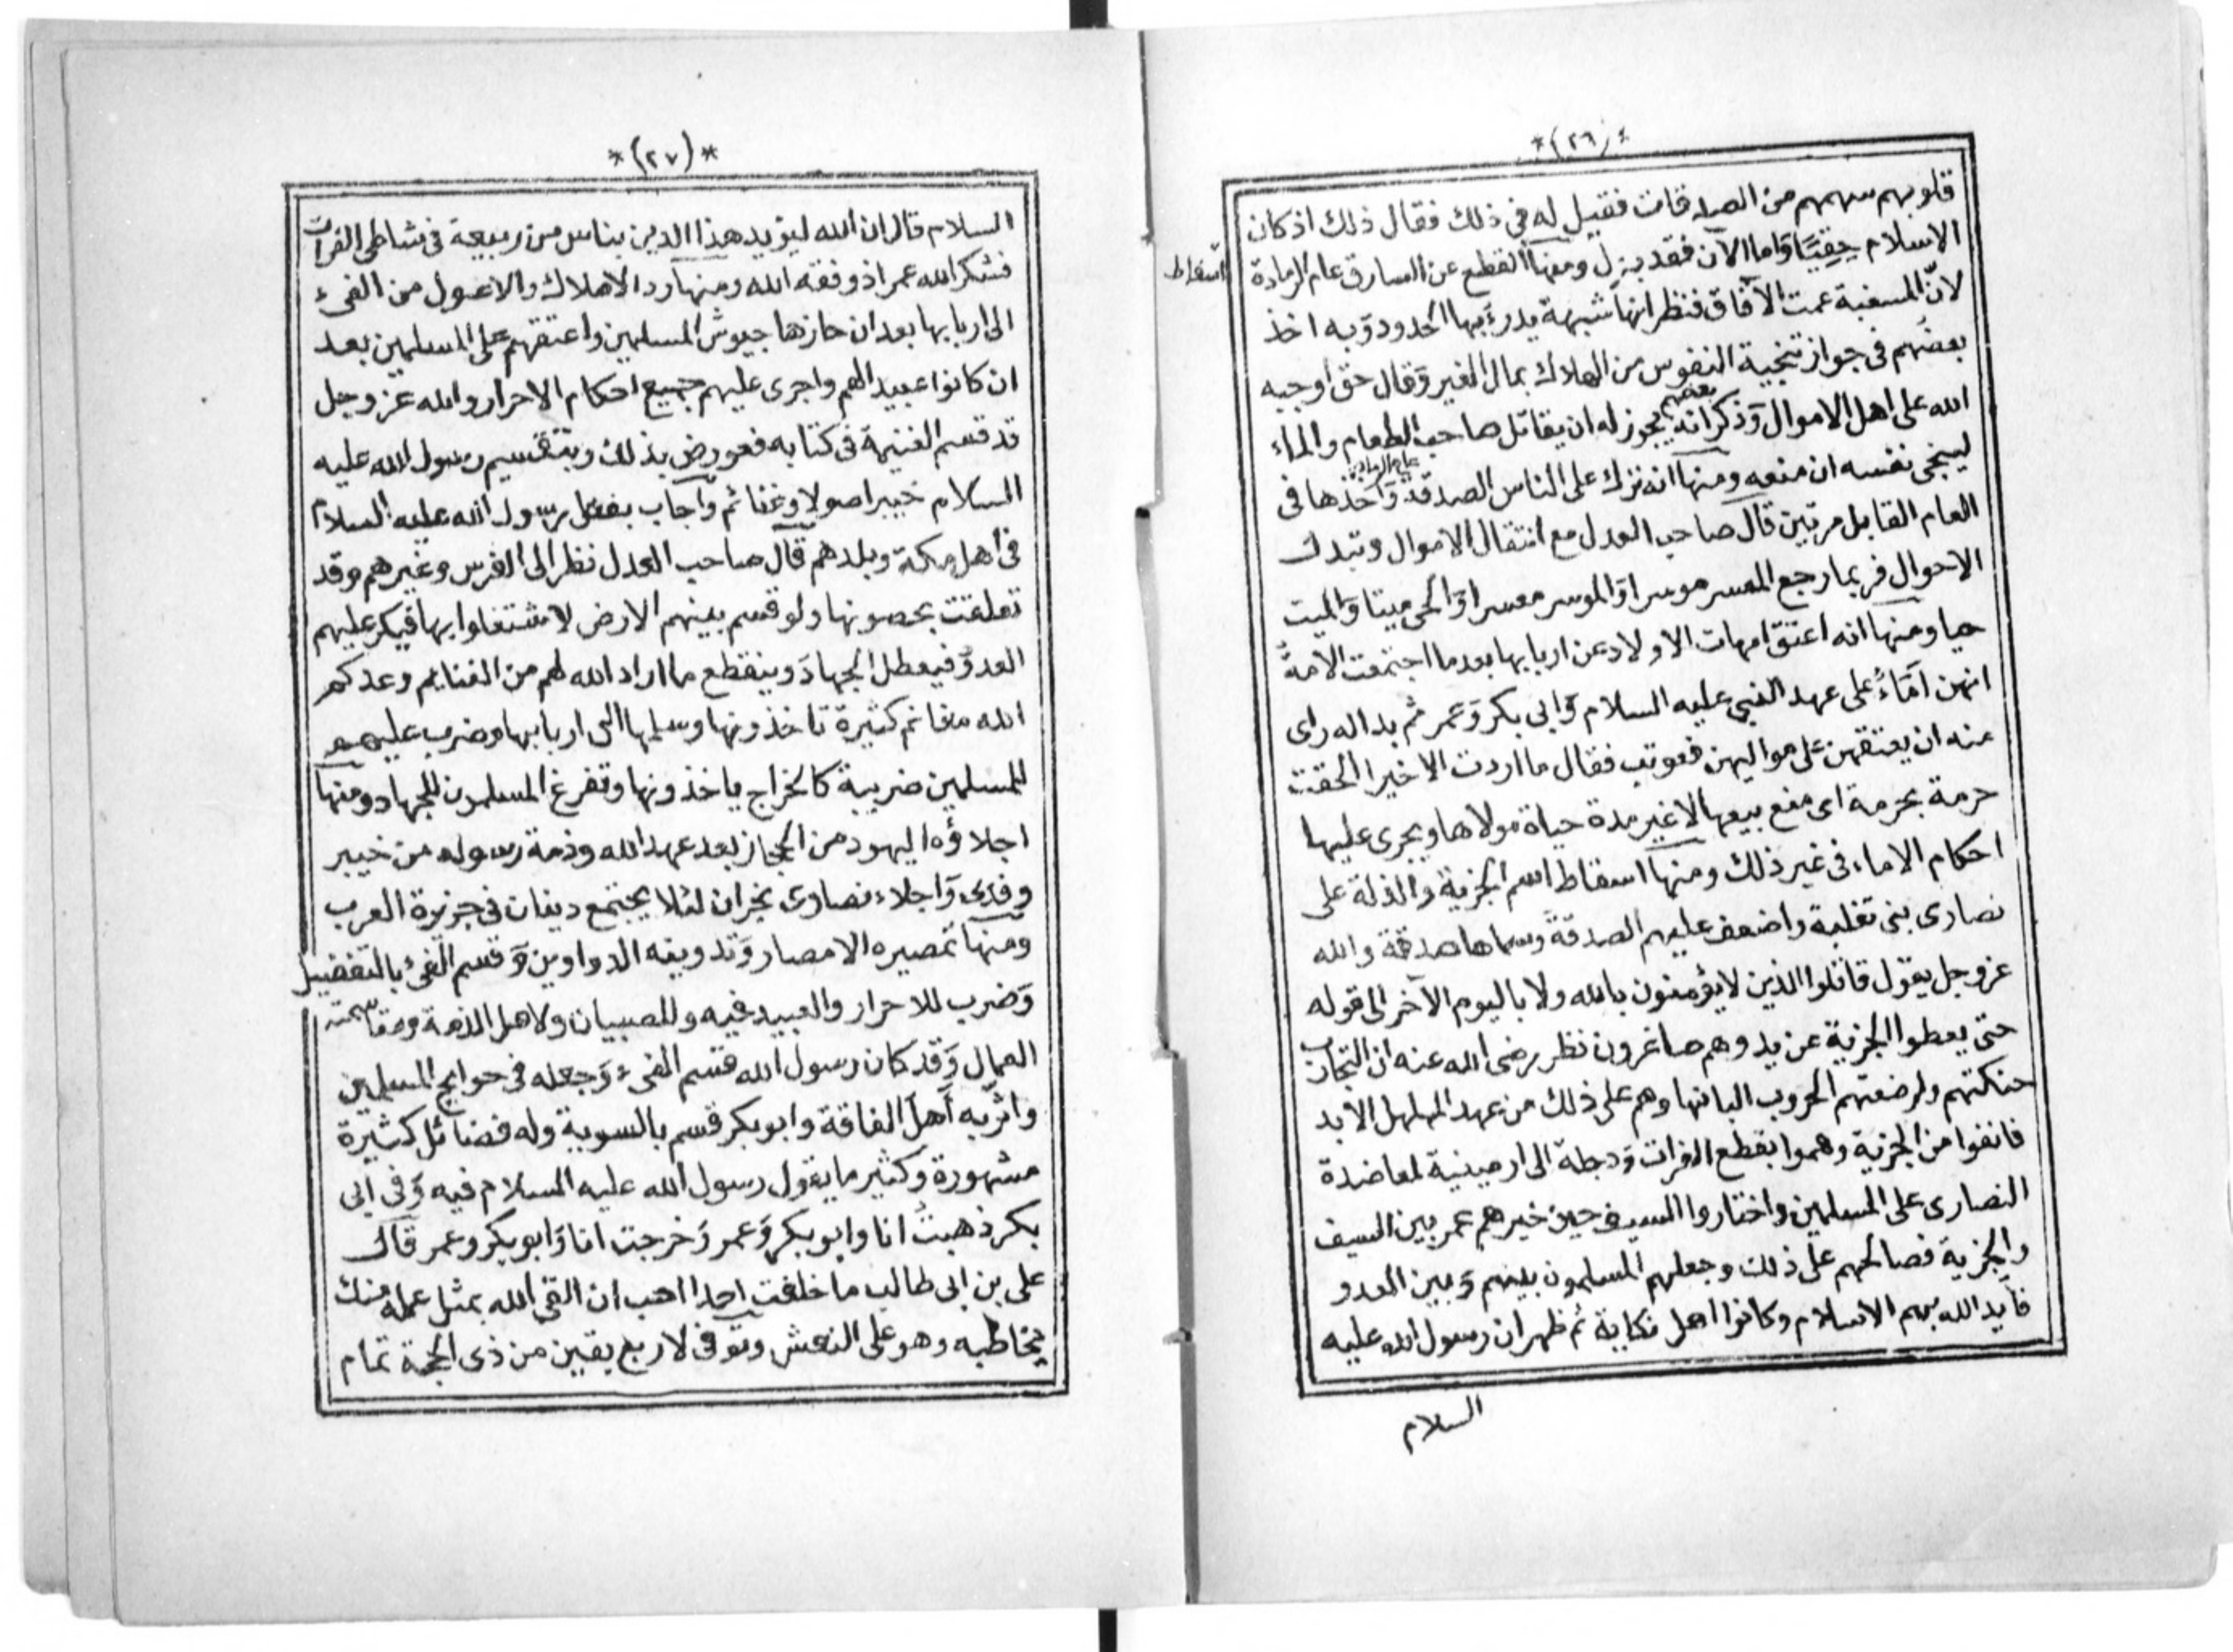 *(٢٦)*
قلوبهم سهمهم من الصدقات فقيل له في ذلك فقال ذلك اذ كان
الاسلام حِقِيًّا وَاما الآن فقد بزل ومنها القطع عن السارق عام الرمادة
اسقاط
لانّ المسغبة عمت الآفاق فنظر انها شبهة يدرءُ بها الحدود وَبه اخذ
بعضهم في جواز تنجية النفوس من الهلاك بمال الغير وَقال حق اوجبه
الله على اهل الاموال وَذكر بعضهم انه يجوز له ان يقاتل صاحب الطعام والماء
لينجى نفسه ان منعه ومنها انه ترك على الناس الصدقة عام الرمادة وَاخذها في
العام القابل مرتين قال صاحب العدل مع انتقال الاموال وتبدل
الاحوال فربما رجع المعسر موسرا وَالموسر معسرا وَالحى ميتا وَالميت
حيا ومنها انه اعتق امهات الاولاد عن اربابها بعد ما اجتمعت الامةُ
انهن اَمَاءُ على عهد النبي عليه السلام وَابى بكر وَعمر ثم بدا له راى
منه ان يعتقهن على مواليهن فعوتب فقال ما اردت الا خيرا الحقت
حرمة بحرمة اى منع بيعها لا غير مدة حياة مولاها ويجرى عليها
احكام الاماء في غير ذلك ومنها اسقاط اسم الجزية والذلة على
نصارى بنى تغلبة واضعف عليهم الصدقة وسماها صدقة والله
عزوجل يقول قاتلوا الذين لا يؤمنون بالله ولا باليوم الآخر الى قوله
حتى يعطوا الجزية عن يد وهم صاغرون نظر رضى الله عنه ان التجارب
حنكتهم وارضعتهم الحروب البانها وهم على ذلك من عهد المهلهل الأبد
فانفوا من الجزية وهموا بقطع الفرات وَدجلة الى ارمينية لمعاضدة
النصارى على المسلمين واختاروا السيف حين خيرهم عمر بين السيف
والجزية فصالحهم على ذلك وجعلهم المسلمون بينهم وَبين العدو
فأيد الله بهم الاسلام وكانوا اهل نكاية ثم ظهر ان رسول الله عليه
السلام
*(٢٧)*
السلام قال ان الله ليؤيد هذا الدين بناس من ربيعة في شاطى الفرات
فشكر الله عمر اذ وفقه الله ومنها رد الاملاك والاصول من الفىء
الى اربابها بعد ان حازها جيوش المسلمين واعتقهم على المسلمين بعد
ان كانوا عبيدا لهم واجرى عليهم جميع احكام الاحرار والله عز وجل
قد قسم الغنيمة في كتابه فعورض بذلك وبتقسيم رسول الله عليه
السلام خيبر اصولا وغنائم وَاجاب بفعل رسول الله عليه السلام
في اهل مكة وبلدهم قال صاحب العدل نظر الى الفرس وغيرهم وقد
تعلقت بحصونها ولو قسم بينهم الارض لاشتغلوا بها فيكر عليهم
العدوّ فيعطل الجهادَ وينقطع ما اراد الله لهم من الغنايم وعدكم
الله مغانم كثيرة تاخذونها وسلمها الى اربابها وضرب عليهم
للمسلمين ضريبة كالخراج ياخذونها وتفرغ المسلمون للجهاد ومنها
اجلاؤه اليهود من الحجاز بعد عهد الله وذمة رسوله من خيبر
وفدى وَاجلاء نصارى نجران لئلا يجتمع دينان في جزيرة العرب
ومنها تمصيره الامصار وَتدوينه الدواوين وَقسم الفىء بالتفضيل
وَضرب للاحرار والعبيد فيه وللصبيان ولاهل الذمة ومقاسمته
العمال وَقد كان رسول الله قسم الفىء وَجعله في حوايج المسلمين
واثر به اَهل الفاقة وابو بكر قسم بالسوية وله فضائل كثيرة
مشهورة وكثير ما يقول رسول الله عليه السلام فيه وَفى ابى
بكر ذهبتُ انا وابو بكر وَعمر وَخرجت انا وَابو بكر وعمر قال
على بن ابى طالب ما خلفت احدا احب ان القى الله بمثل عمله منك
يخاطبه وهو على النعش وتوفى لاربع بقين من ذى الحجة تمام